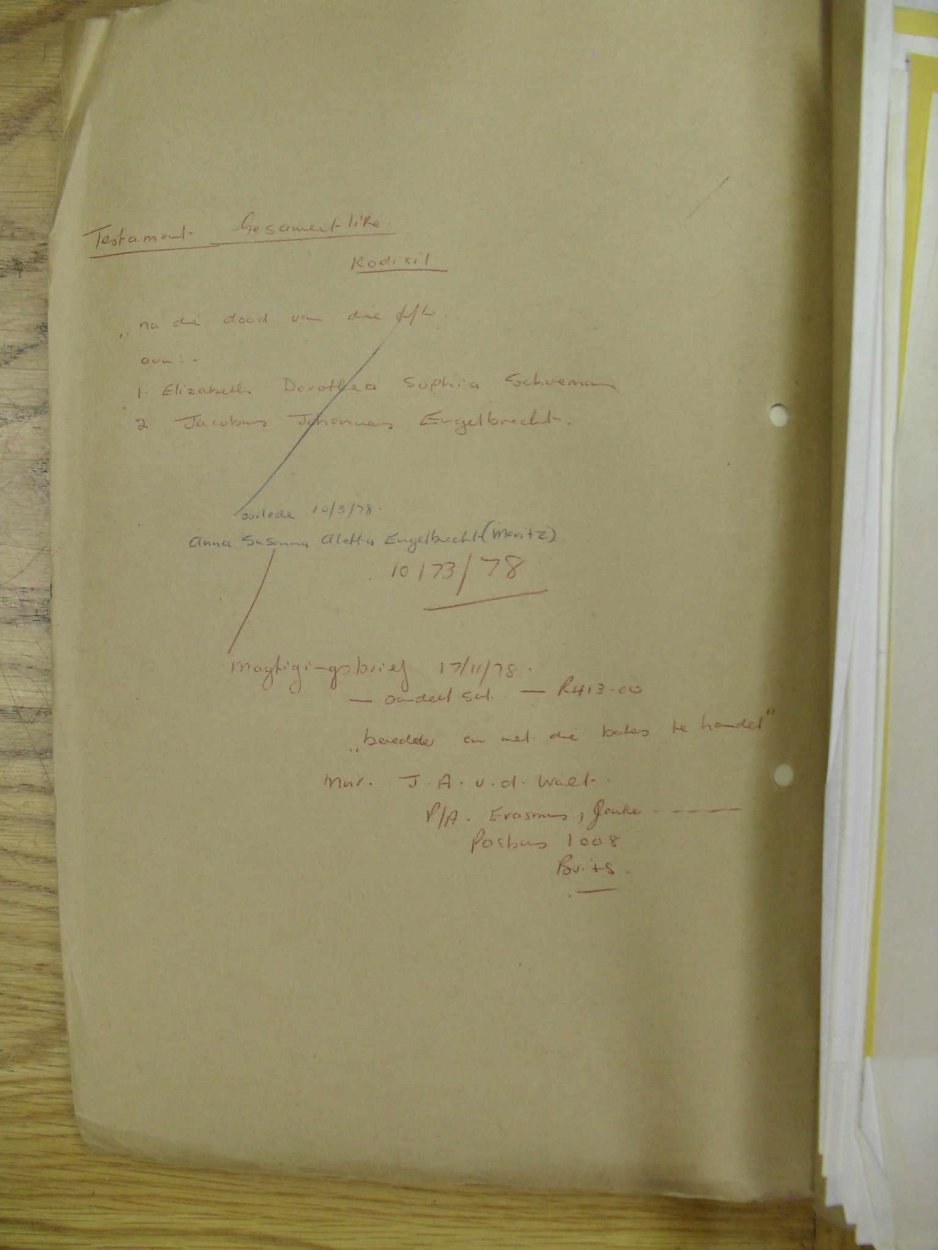 Testament Gesamentlike.
Kodisil
"na die dood van die l/l.
aan:-
1. Elizabeth Dorothea Sophia Schoeman
2 Jacobus Johannes Engelbrecht.
oorlede 10/3/78.
Anna Susanna Aletta Engelbrecht (Moritz)
10173/78
Magtigingsbrief 17/11/78.
— aandeel — R413-00
"beredder en met die bates te handel"
Mnr. J. A. v. d. Walt.
P/A. Erasmus, -----
Posbus 1008
Brits.